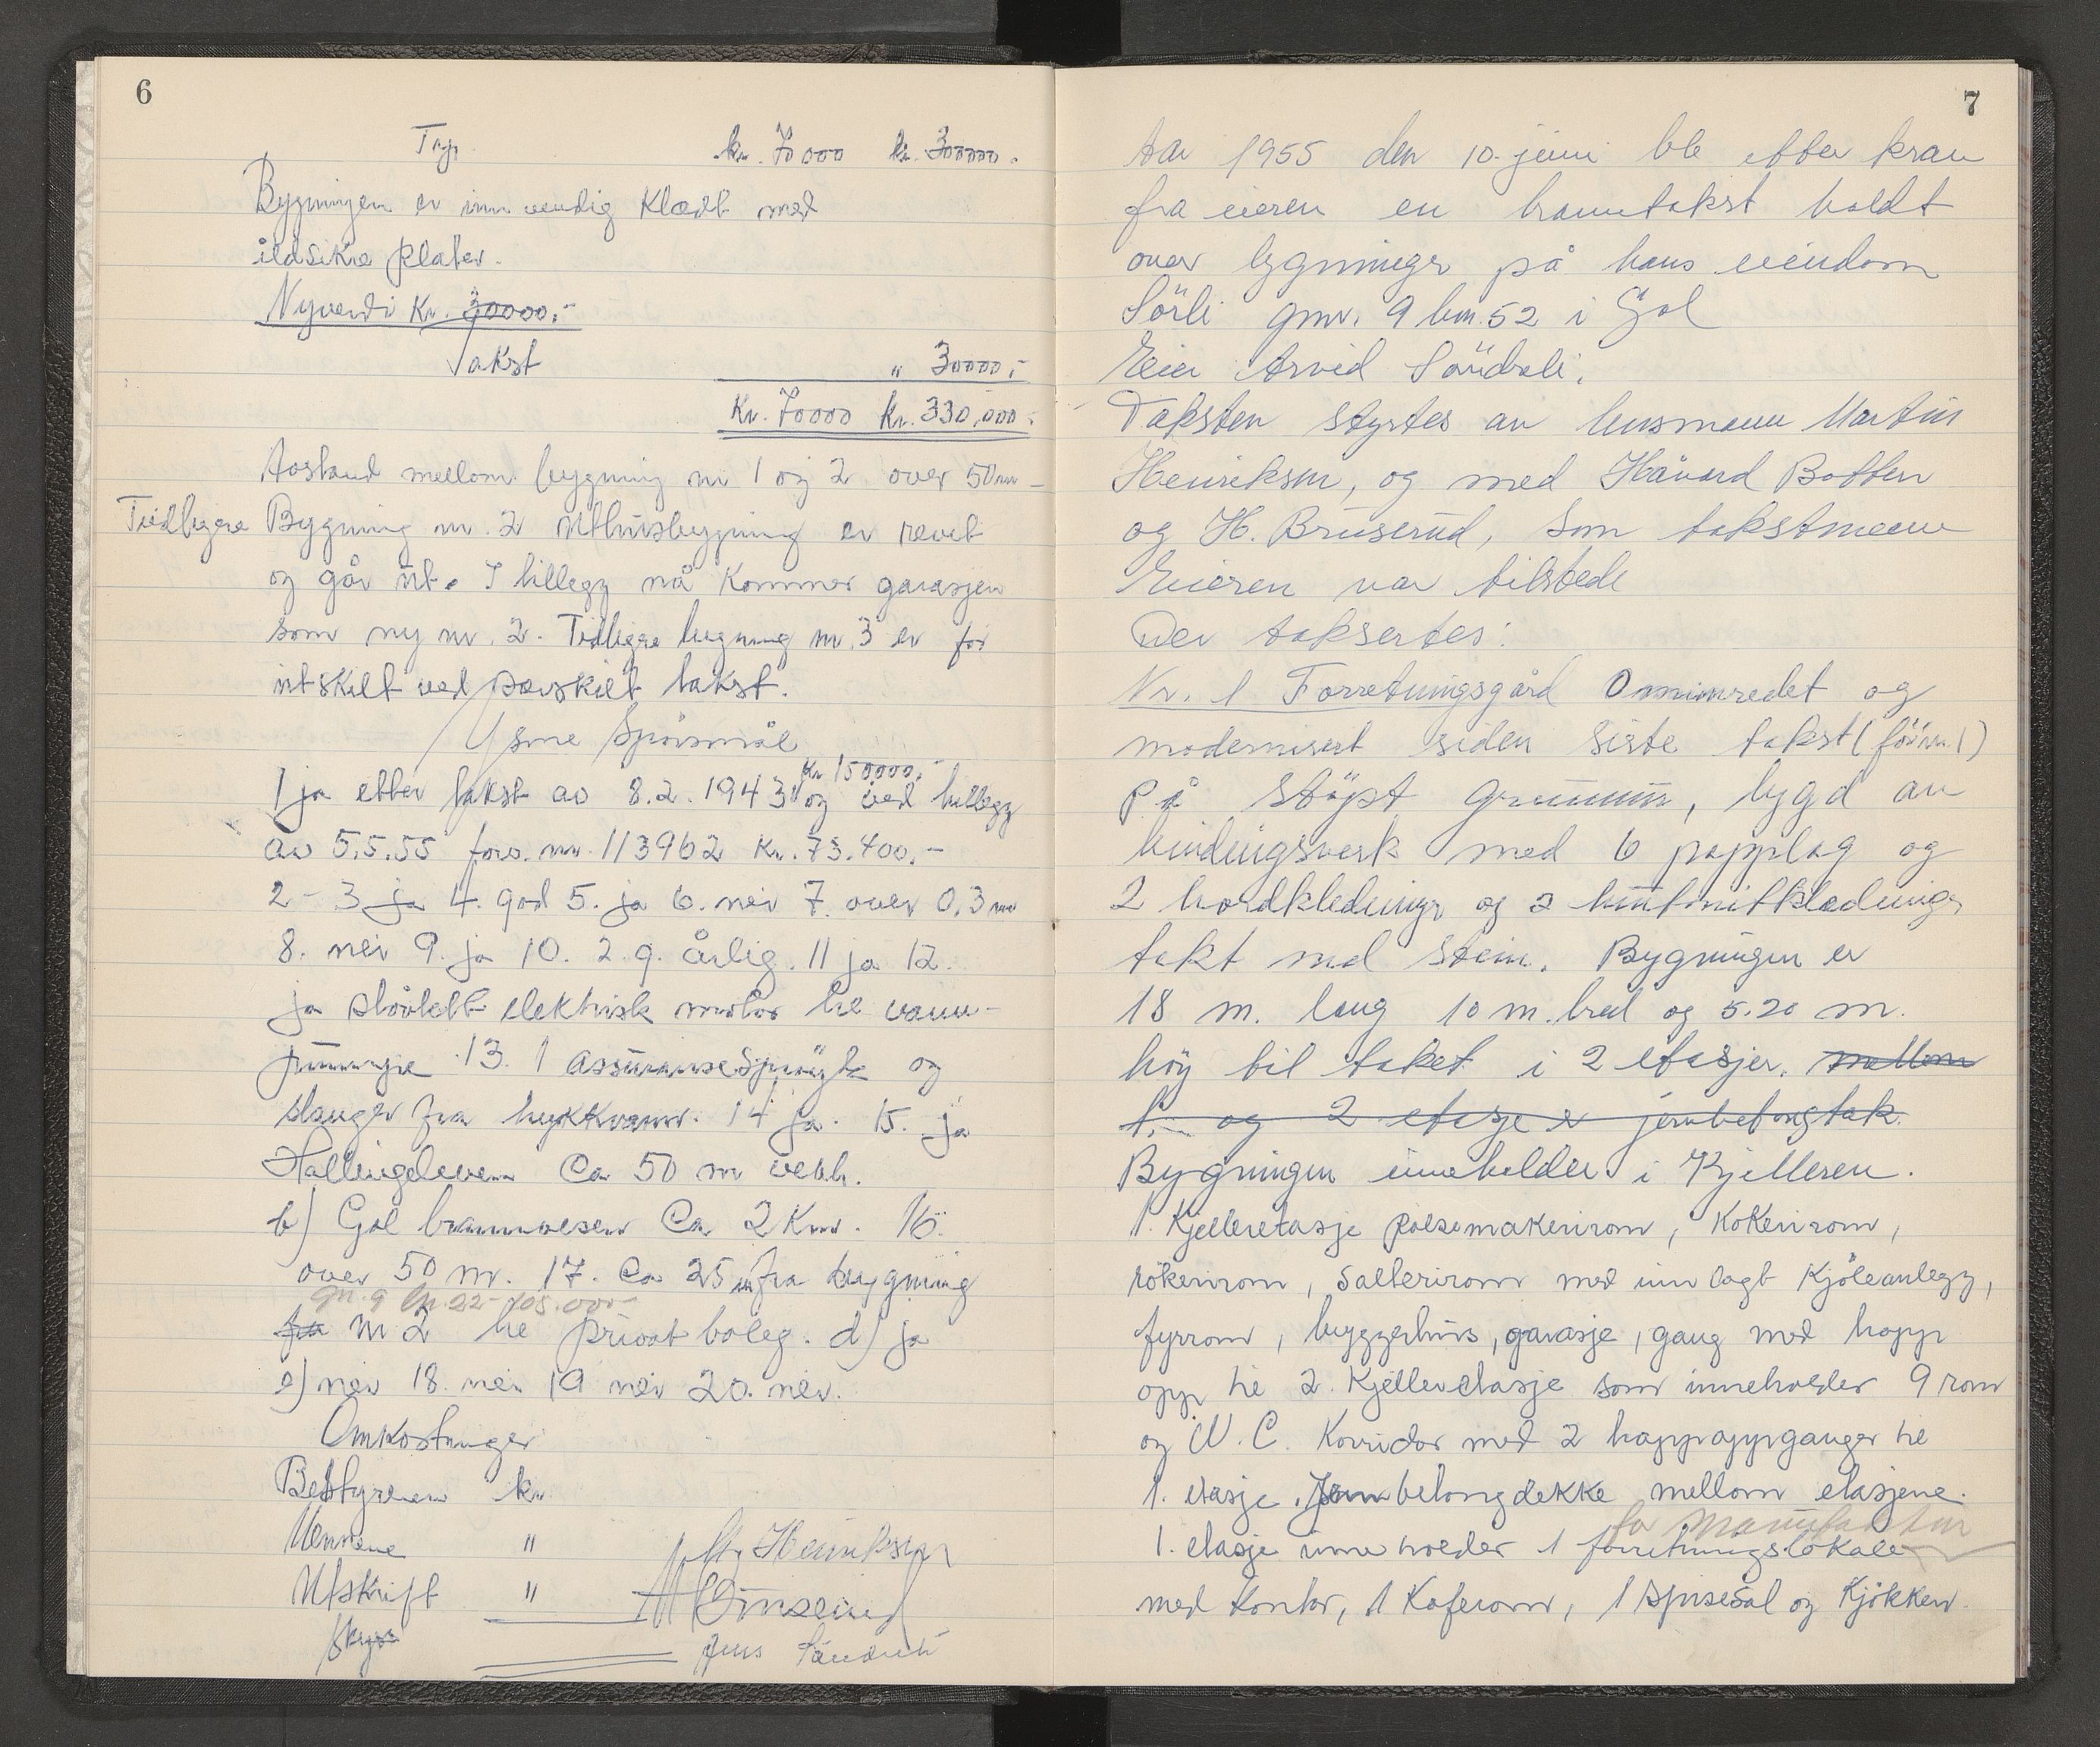 6
Trp. kr. 70000 kr. 300000.
Bygningen er innvendig Klædt med
ildsikre plater.
Nyverdi Kr. 30000.-
Takst " 30000.-
Kr. 70000 Kr. 330,000.-
Avstand mellom bygning nr 1 og 2 over 50 m
Tidligere Bygning nr. 2 Uthusbygning er revet
og går ut. I tillegg nå kommer garasjen
som ny nr. 2. Tidligere bygning nr. 3 er før
utskilt ved særskilt takst.
Spørsmål
kr 150000.-
1 ja etter takst av 8.2.1943 og ved tillegg
av 5.5.55 fors. nr. 113962 Kr. 73.400.-
2 - 3 ja 4. god 5. ja 6. nei 7. over 0,3 m
8. nei 9. ja 10. 2 g. årlig. 11 ja 12.
ja støvtett elektrisk motor til vann-
pumpe 13. 1 assuransesprøyte og
slanger fra trykkvann. 14 ja. 15. ja
Hallingelven Ca 50 m vekk.
b) Gol brannvesen Ca 2 Km. 16.
over 50 m. 17. Ca 25 m fra bygning
gn. 9 bn. 22 - 105.000-
fra nr 2 til privat boleg. d) ja
e) nei 18. nei 19 nei 20. nei.
Omkostninger
Bestyreren kr.
Mennene "
Utskrift "
Skyss
M. Henriksen
H Bruserud
Jens
7
År 1955 den 10. juni ble etter krav
fra eieren en branntakst holdt
over bygninger på hans eiendom
Sörli gnr. 9 bnr. 52 i Gol
Eier Arvid Söndreli.
Taksten styrtes av lensmann Martin
Henriksen, og med Håvard Botten
og H. Bruserud, som takstmenn
Eieren var tilstede
Der taksertes:
Nr. 1 Forretningsgård Ominnredet og
modernisert siden siste takst (för nr. 1)
På stöpt grunnmur, bygd av
bindingsverk med 6 papplag og
2 bordkledninger og 2 huntonitkledninger
tekt med stein. Bygningen er
18 m. lang 10 m. bred og 5.20 m.
höy til taket i 2 etasjer. mellom
1. og 2 etasje er jernbetongtak.
Bygningen inneholder i Kjelleren.
1. Kjelleretasje pølsemakerirom, kokerirom,
rökerirom, salterirom med innlagt kjöleanlegg,
fyrrom, bryggerhus, garasje, gang med trapp
opp til 2. Kjelleretasje som inneholder 9 rom
og W.C. Korridor med 2 trappoppganger til
1. etasje. Jernbetongdekke mellom etasjene.
for Manufaktur
1. etasje inneholder 1 forretningslokale
med kontor, 1 Kaferom, 1 spisesal og Kjökken.